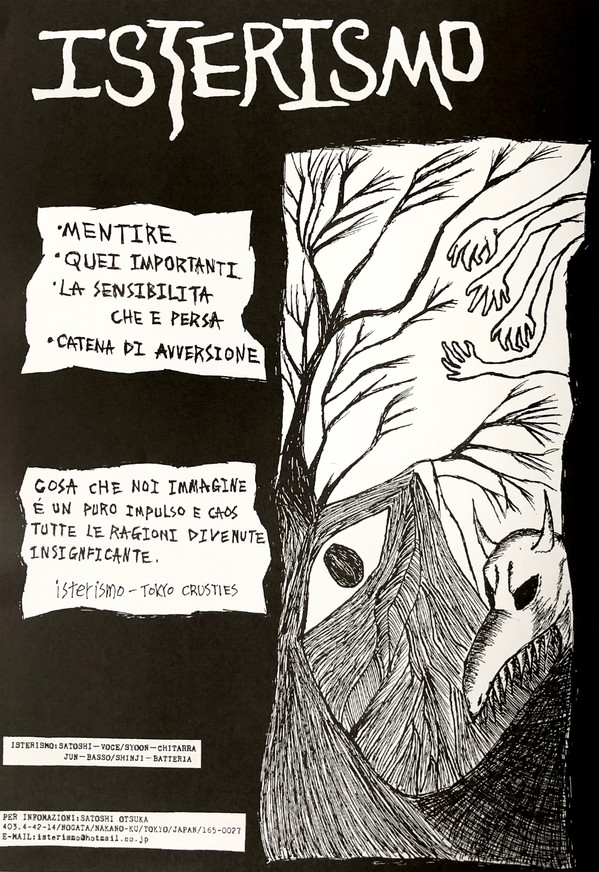 ISTERISMO
·MENTIRE
·QUEI IMPORTANTI
·LA SENSIBILITA
CHE E PERSA
·CATENA DI AVVERSIONE
COSA CHE NOI IMMAGINE
É UN PURO IMPULSO E CAOS
TUTTE LE RAGIONI DIVENUTE
INSIGNFICANTE.
isterismo - TOKYO CRUSTIES
ISTERISMO:SATOSHI-VOCE/SYOON-CHITARRA
JUN-BASSO/SHINJI-BATTERIA
PER INFOMAZIONI:SATOSHI OTSUKA
403.4-42-14/NOGATA/NAKANO-KU/TOKYO/JAPAN/165-0027
E-MAIL:isterismo@hotmail.co.jp